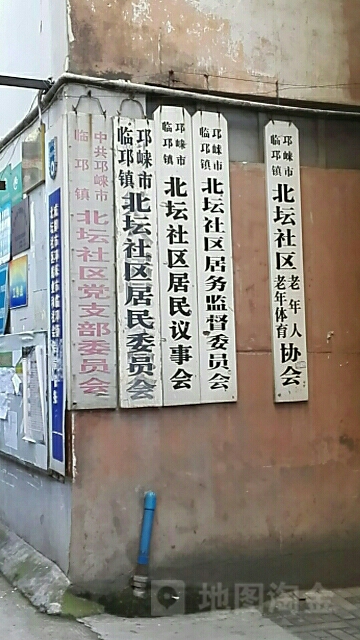 中共邛崃市
临邛镇
北坛社区党支部委员会
邛崃市
临邛镇
北坛社区居民委员会
邛崃市
临邛镇
北坛社区居民议事会
邛崃市
临邛镇
北坛社区居务监督委员会
邛崃市
临邛镇
北坛社区
老年人
老年体育
协会
地图淘金